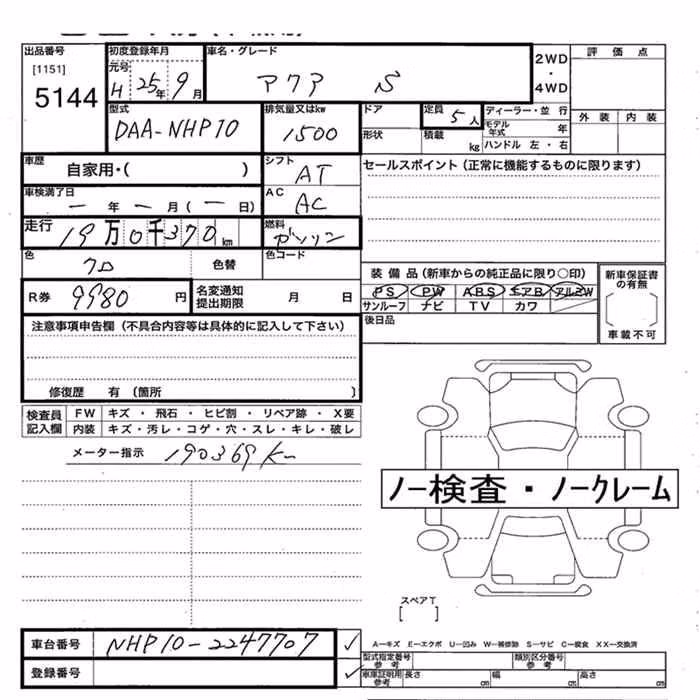 出品番号 初度登録年月 車名・グレード 2WD ・ 4WD 評価点
[1151] 元号
5144 H 25年 9月 アクア S
型式 排気量又はkw ドア 定員 5人 ディーラー・並行 外装 内装
DAA-NHP10 1500 形状 積載 kg モデル年式 年
ハンドル 左・右
車歴 自家用・( ) シフト AT セールスポイント(正常に機能するものに限ります)
車検満了日 AC
ー 年 ー 月 (ー 日) AC
走行 19万0千370km 燃料 ガソリン
色 クロ 色替 色コード 装備品(新車からの純正品に限り○印) 新車保証書の有無
R券 9980円 名変通知提出期限 月 日 PS PW ABS エアB アルミW
サンルーフ ナビ TV カワ
注意事項申告欄(不具合内容等は具体的に記入して下さい) 後日品 車載不可
修復歴 有 (箇所 )
検査員記入欄 FW キズ・飛石・ヒビ割・リペア跡・X要
内装 キズ・汚レ・コゲ・穴・スレ・キレ・破レ
メーター指示 190369K
ノー検査・ノークレーム
スペアT
[ ]
車台番号 NHP10-2247707 ✓ A−キズ E−エクボ U−凹み W−補修跡 S−サビ C−腐食 XX−交換済
型式指定番号参考 類別区分番号参考
登録番号 ✓ 車庫証明用参考 長さ cm 幅 cm 高さ cm